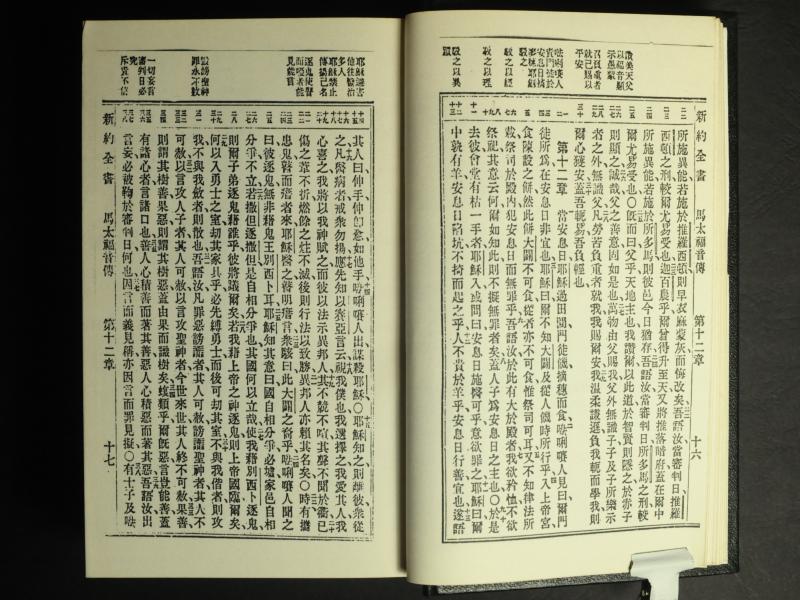 讚美天父
以福音顯
示愚蒙
召負重者
就己賜以
平安
所施異能若施於推羅西頓則早衣麻蒙灰而悔改矣吾語汝當審判日推羅
西頓之刑較爾尤易受也迦百農乎爾曾得升至天又將推落暗府蓋在爾中
所施異能若施於所多馬則彼邑今日猶存吾語汝當審判日所多馬之刑較
爾尤易受也○旣而曰父乎天地主也我讚爾以此道於智賢則隱之於赤子
則顯之誠哉父之善意固如是也萬物由父賜我父外無識子子及子所樂示
者之外無識父凡勞苦負重者就我我賜爾安我溫柔謙遜負我軛而學我則
爾心獲安蓋吾軛易吾負輕也
第十二章 當安息日耶穌過田間門徒饑摘穗而食唎人見曰爾門
徒所爲在安息日非宜也耶穌曰爾不知大闢及從人饑時所行乎入上帝宮
食陳設之餅然此餅大闢不可食從者亦不可食惟祭司可耳又不知律法所
載祭司於殿內犯安息日而無罪乎吾語汝於此有大於殿者我欲矜恤不欲
祭祀其意云何爾如知此則不擬無罪者矣蓋人子爲安息日之主也○於是
去彼會堂有枯一手者耶穌入或問曰安息日施醫可乎意欲罪之耶穌曰爾
中孰有羊安息日陷坑不援而起之乎人不貴於羊乎安息日行善宜也遂語
新約全書 馬太福音傳 第十二章 十六
其人曰伸手伸卽愈如他手唎人出謀殺耶穌○耶穌知之則離彼衆從
之凡有疾病者醫之戒衆勿揚應先知以賽亞言云視我僕也我選擇之我愛其人我
心喜之我將以我神賦之而彼以法示異邦人其不競不喧其聲不聞於衢已
傷之葦不折燃餘之炷不滅後則行法以致勝異邦人亦賴其名矣○時有攜
患鬼瞽而瘖者來耶穌醫之瞽明瘖言衆駭曰此大闢之裔乎唎人聞之
曰彼逐鬼無非藉鬼王別西卜耳耶穌知其意曰國自相分爭必墟家邑自相
分爭不立若撒但逐撒但是自相分爭也其國何以立哉使我藉別西卜逐鬼
則爾子弟逐鬼藉誰乎彼將議爾矣若我藉上帝之神逐鬼則上帝國臨爾矣
何以入勇士之室劫其家具乎必先縛勇士而後可劫其室不與我偕者則攻
我不與我斂者則散也吾語汝凡罪惡謗讟者其人可赦謗讟聖神者其人不
可赦以言攻人子者其人可赦以言攻聖神者今世來世其人終不可赦果善
則謂其樹善果惡則謂其樹惡蓋由果而識樹矣蝮類乎爾旣惡言豈能善蓋
有諸心者言諸口也善人心積善而著其善惡人心積惡而著其惡吾語汝出
言妄必被鞫於審判日何也因言而義見稱亦因言而罪見擬○有士子及
新約全書 馬太福音傳 第十二章 十七